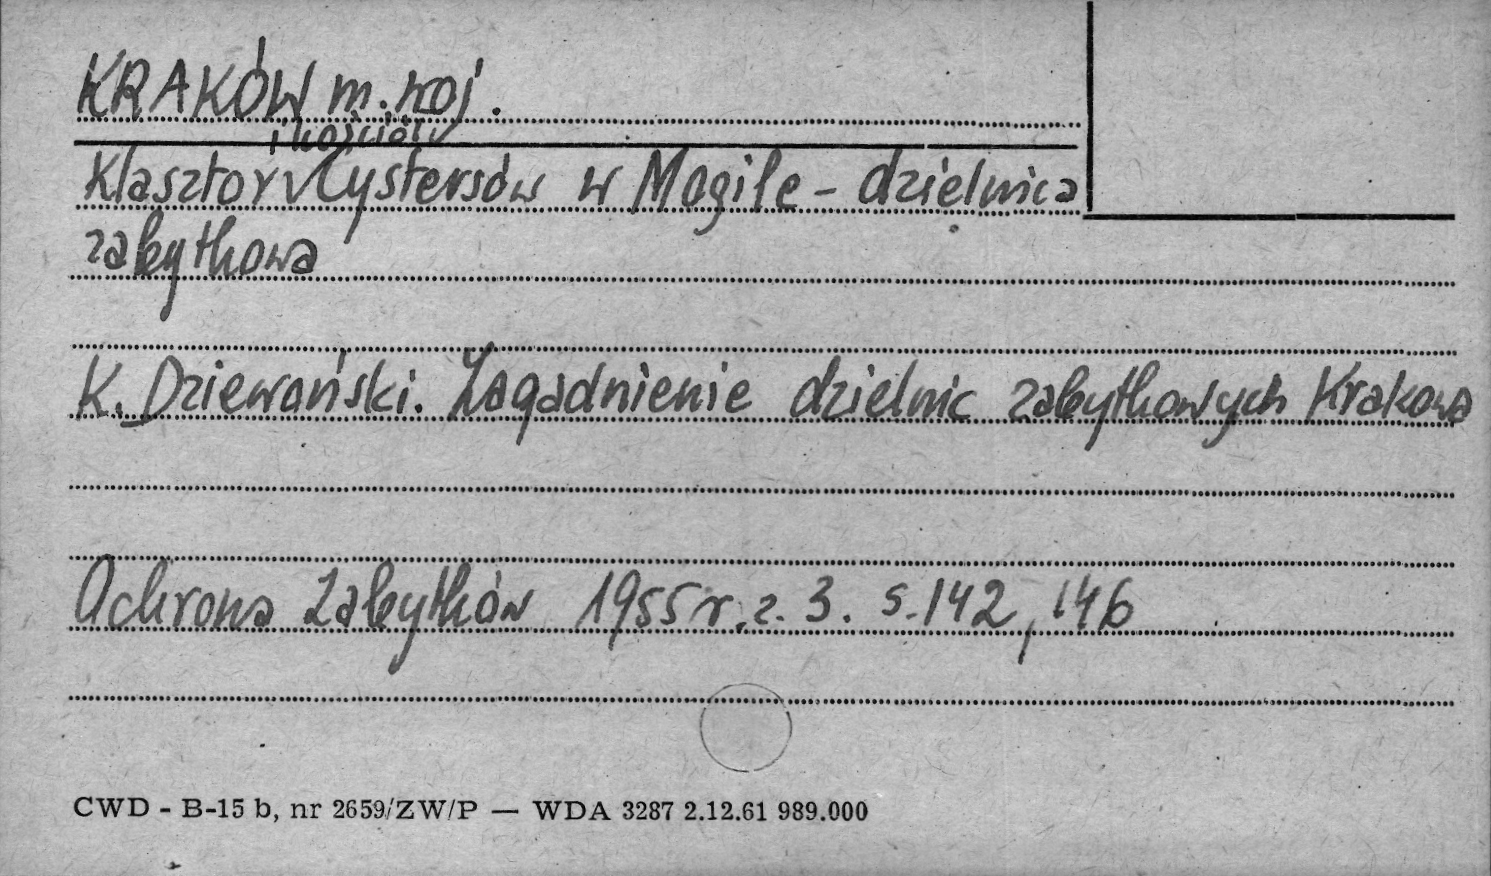 KRAKÓW m. woj.
i kościół
Klasztor Cystersów w Mogile - dzielnica
zabytkowa
K. Dziewoński. Zagadnienie dzielnic zabytkowych Krakowa
Ochrona Zabytków 1955 r. z. 3. s. 142, 146
CWD - B-15 b, nr 2659/ZW/P — WDA 3287 2.12.61 989.000